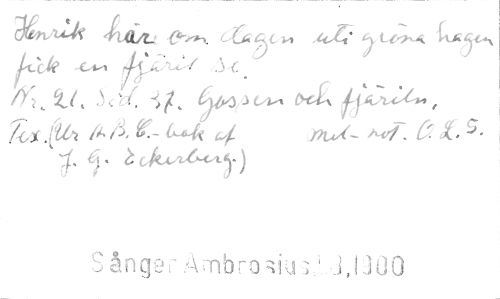 Henrik här om dagen uti gröna hagen
fick en fjäril se.
Nr. 21. Sid. 37. Gossen och fjäriln,
Tex. (Ur A.B.C.-bok af mel-not. O. L. S.
J. G. Eckerberg.)
Sånger Ambrosius 1900